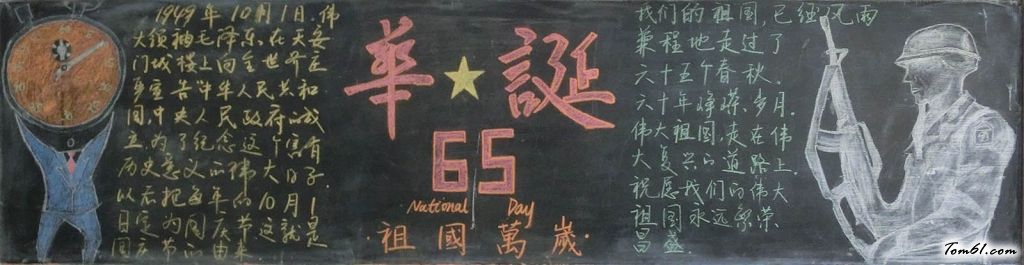 1949年10月1日.伟
大领袖毛泽东.在天安
门城楼上向全世界庄
严宣告中华人民共和
国.中央人民政府的成
立.为了纪念这个富有
历史意义的伟大日子.
以后把每年的10月1
日定为国庆节这就是
国庆节的由来.
華★誕
65
National Day
·祖國萬歲·
我们的祖国,已经风雨
兼程地走过了
六十五个春秋.
六十年峥嵘岁月.
伟大祖国,走在伟
大复兴的道路上
祝愿我们的伟大
祖国永远繁荣
昌盛
Tom61.com